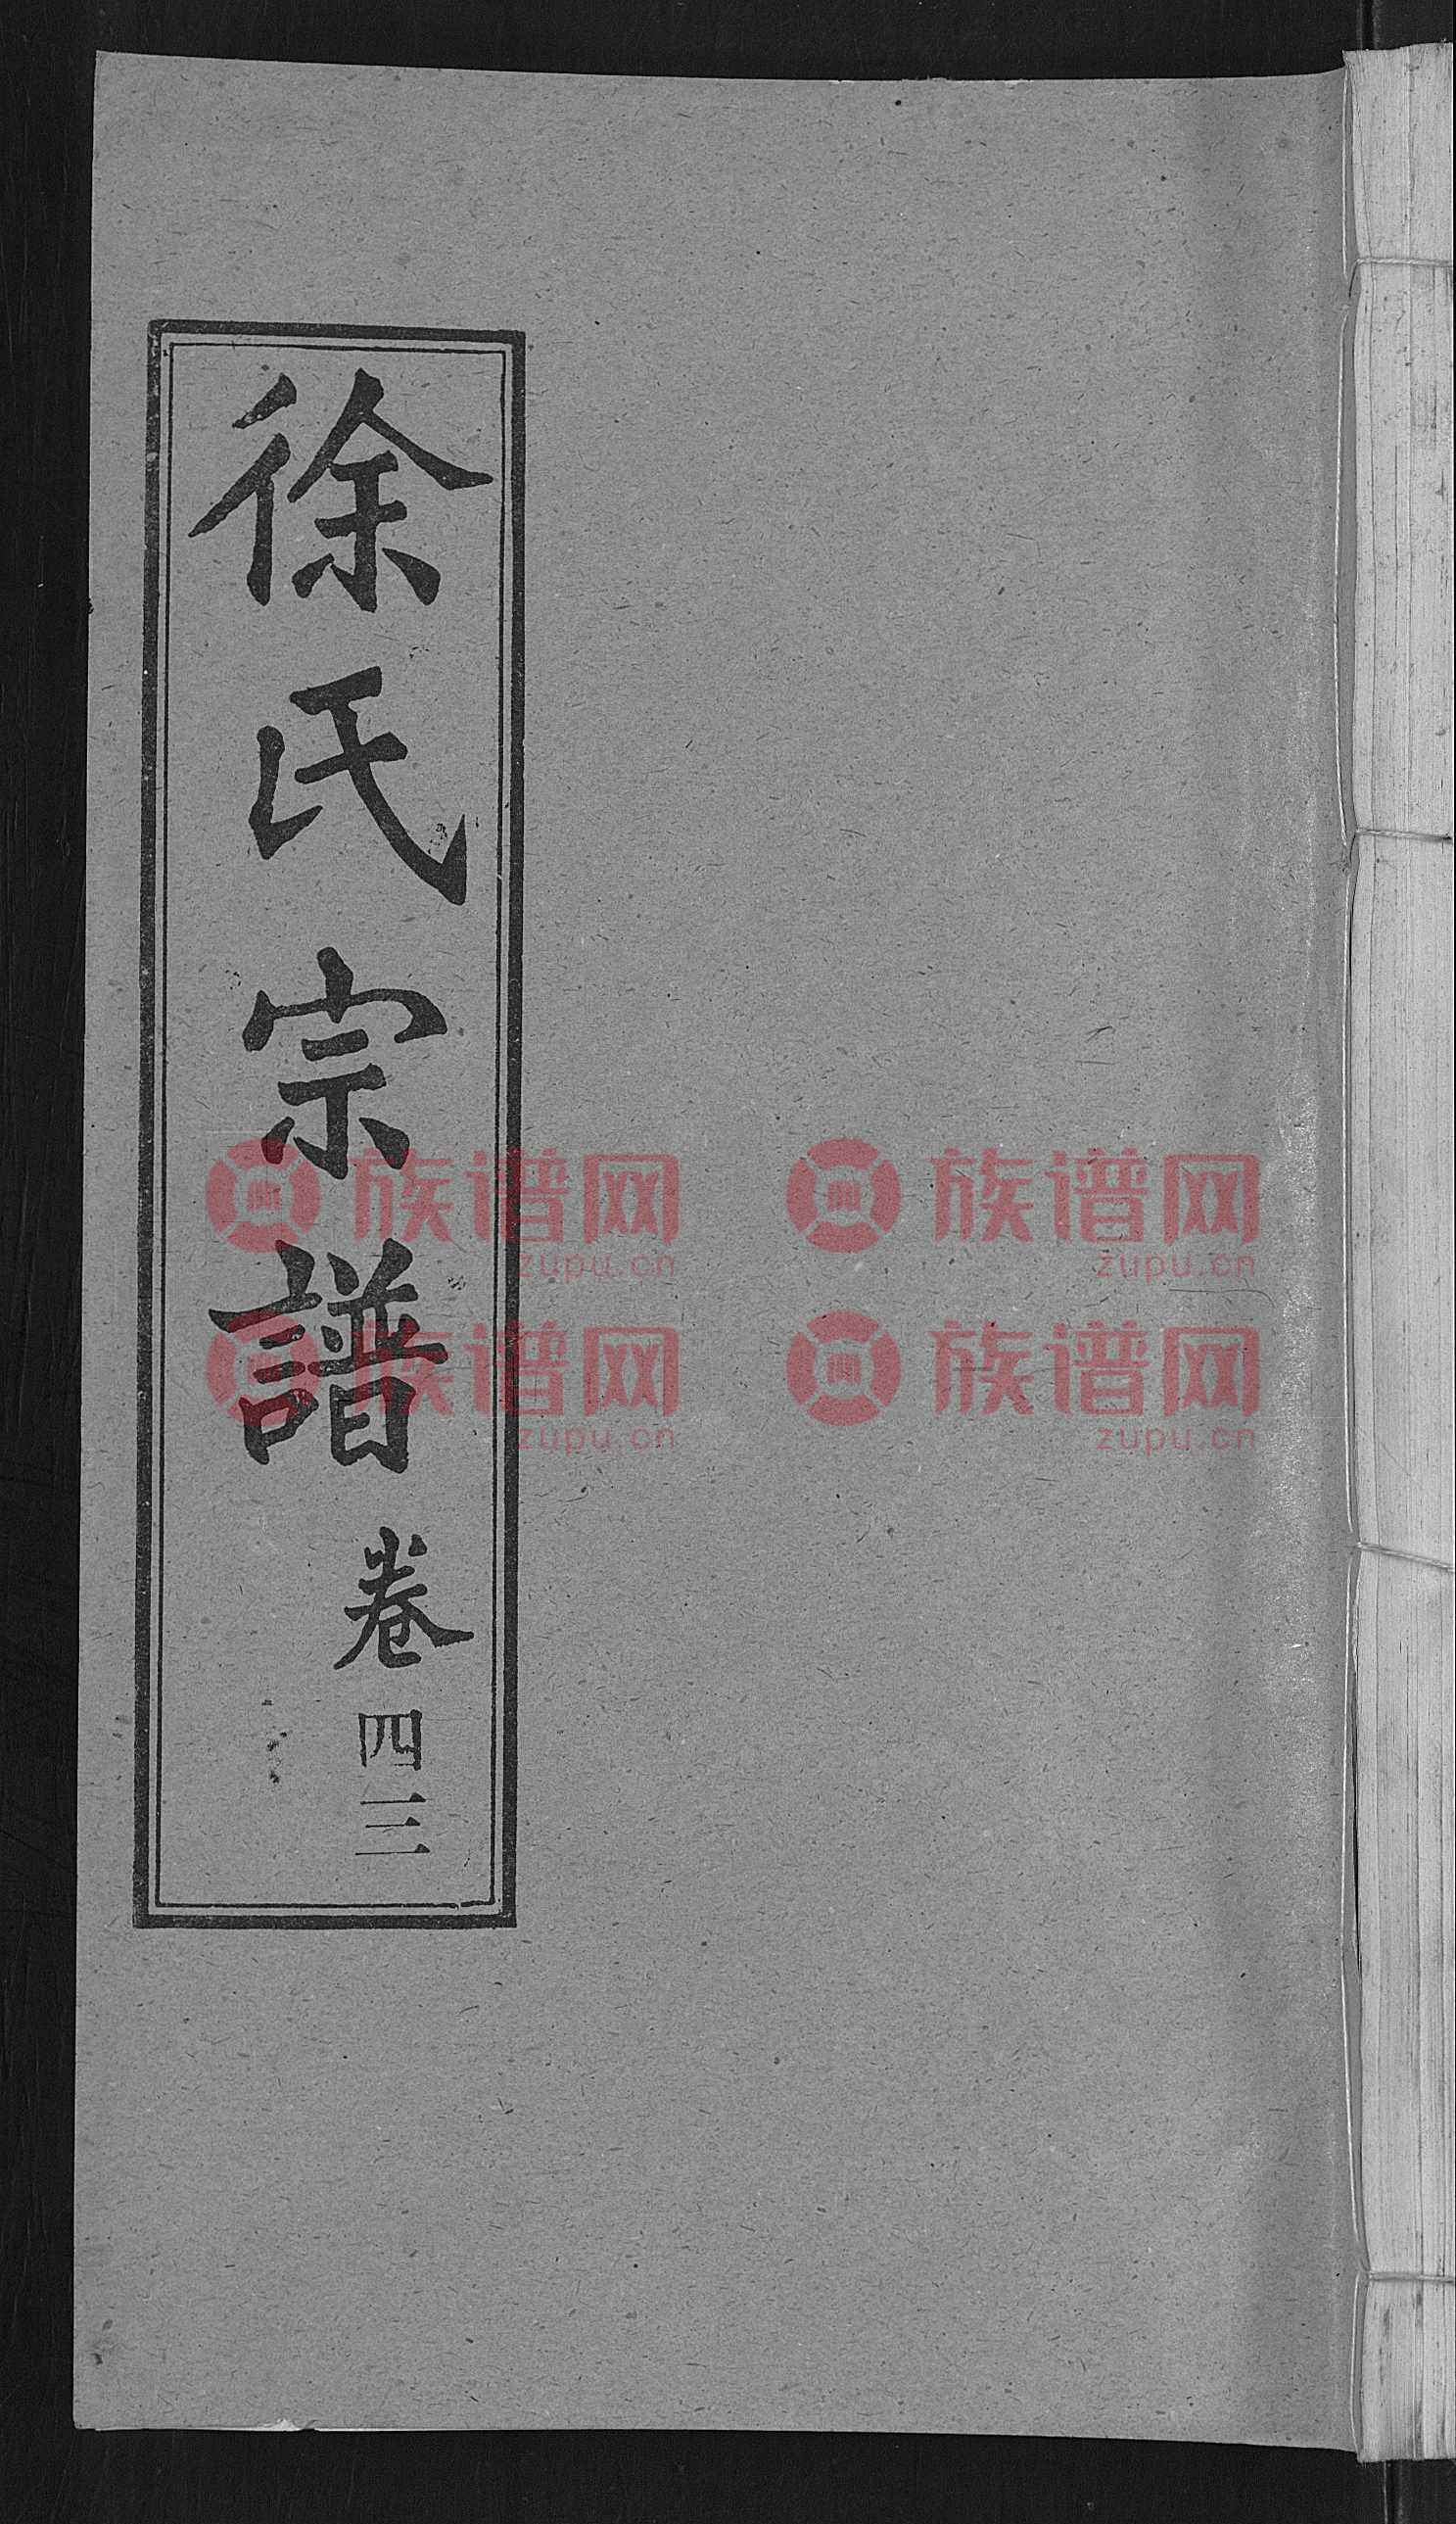 徐氏宗譜 卷四三
族谱网 族谱网
zupu.cn zupu.cn
族谱网 族谱网
zupu.cn zupu.cn